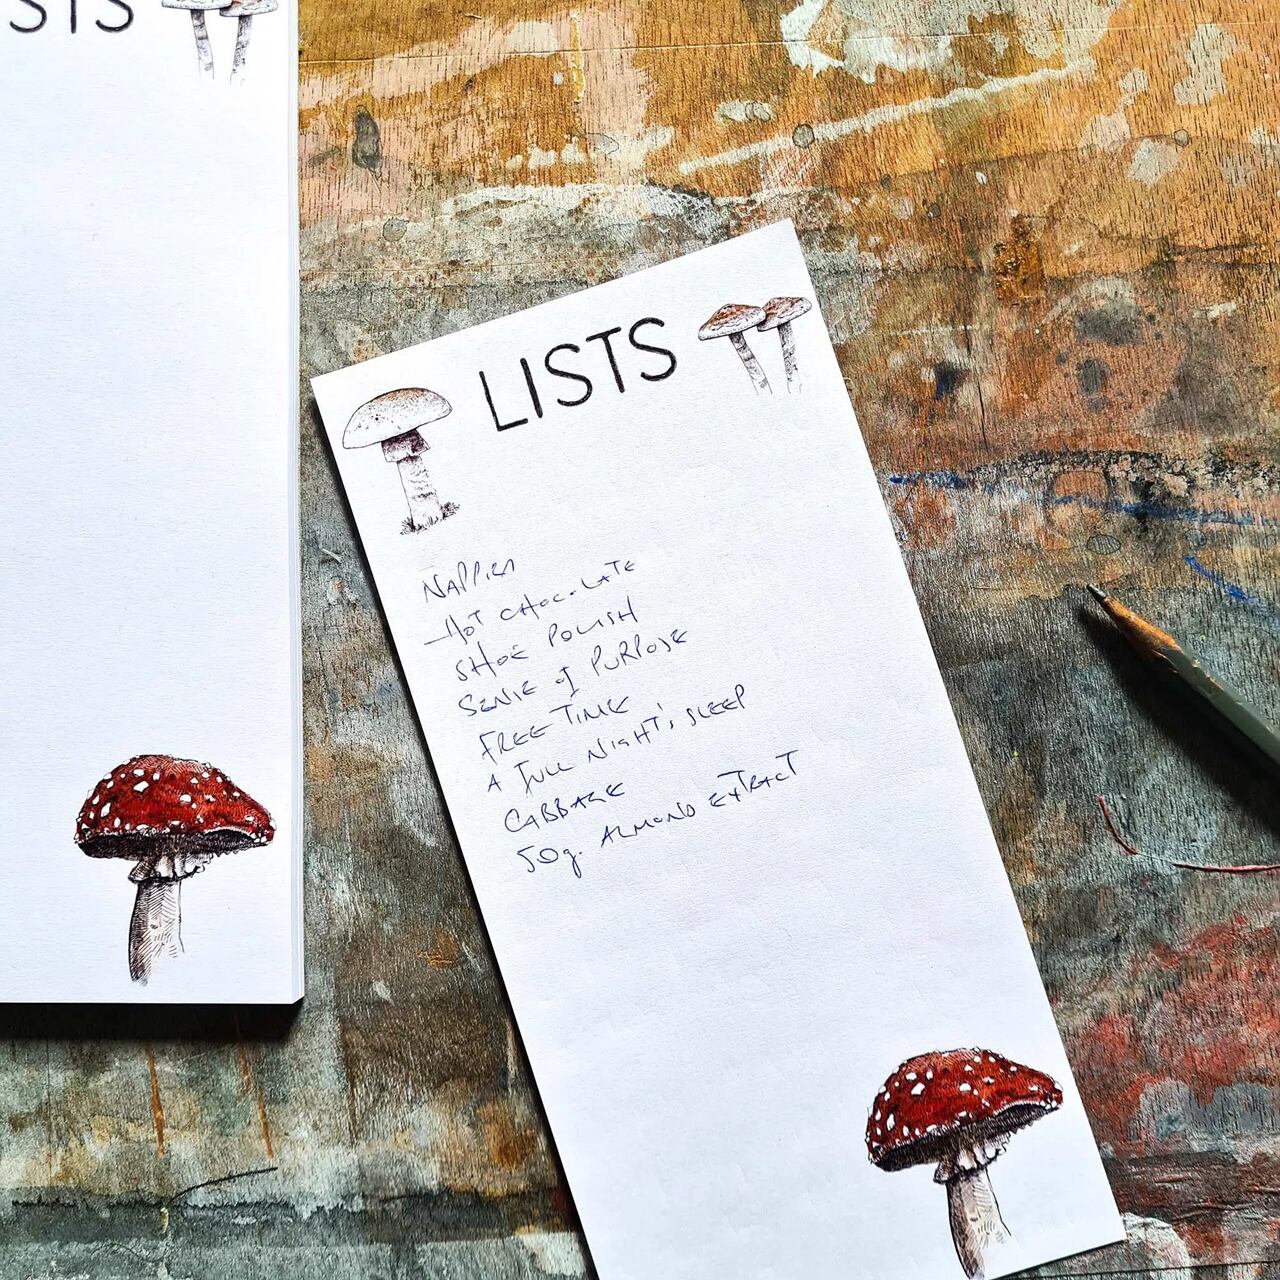 STS
LISTS
NAPPIES
HOT CHOCOLATE
SHOE POLISH
SENSE of PURPOSE
FREE TIME
A FULL NIGHT'S SLEEP
CABBAGE
50g. ALMOND EXTRACT